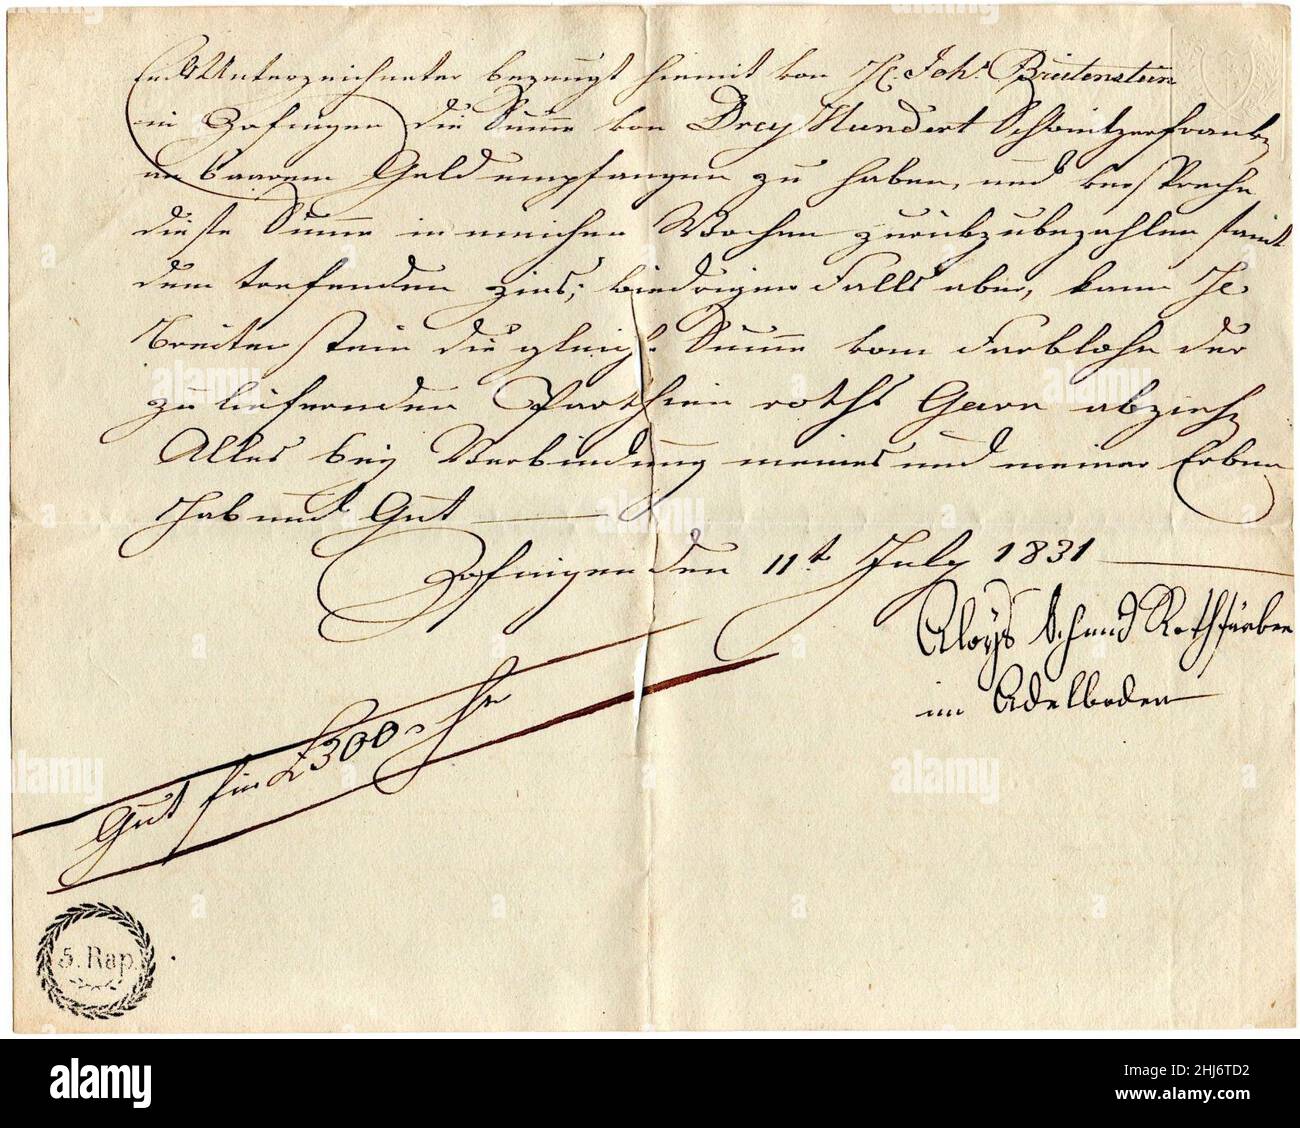 Endsunterzeichneter bezeugt hiermit von H. Johs Breitenstein
in Zofingen die Summe von Drey Hundert Schweitzerfranken
an baarem Geld empfangen zu haben, und verspreche
diese Summe in Wochen zurückzubezahlen samt
dem trefenden Zins; wiedrigen Falls aber, kann H.
Breitenstein die gleiche Summe vom Farblohn der
zu liefernden Parthien roths Garn abziehen
Alles bey Verbindung meines und meiner Erben
Hab und Gut
Zofingen den 11t July 1831
Aloys Schmid Rothfärber
im Adelboden
Gut für £ 300 Sfr
5. Rap.
alamy
Image ID: 2HJ6TD2
www.alamy.com